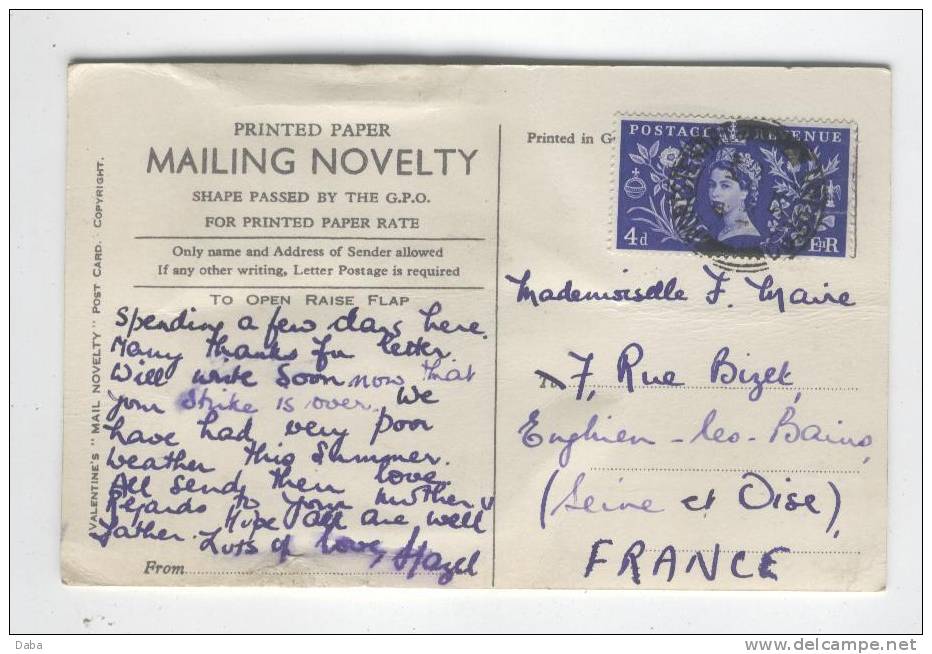 PRINTED PAPER
MAILING NOVELTY
SHAPE PASSED BY THE G.P.O.
FOR PRINTED PAPER RATE
Only name and Address of Sender allowed
If any other writing, Letter Postage is required
TO OPEN RAISE FLAP
Spending a few days here.
Many thanks for letter.
Will write soon now that
your strike is over. We
have had very poor
weather this summer.
All send their love
Regards to your mother &
father. Hope all are well
Lots of love, Hazel
From
VALENTINE'S "MAIL NOVELTY" POST CARD. COPYRIGHT.
Printed in G
POSTAGE REVENUE
4d
EIIR
Mademoiselle F. Maire
To 7, Rue Bizet,
Enghien-les-Bains,
(Seine et Oise)
FRANCE
Daba
www.delcampe.net